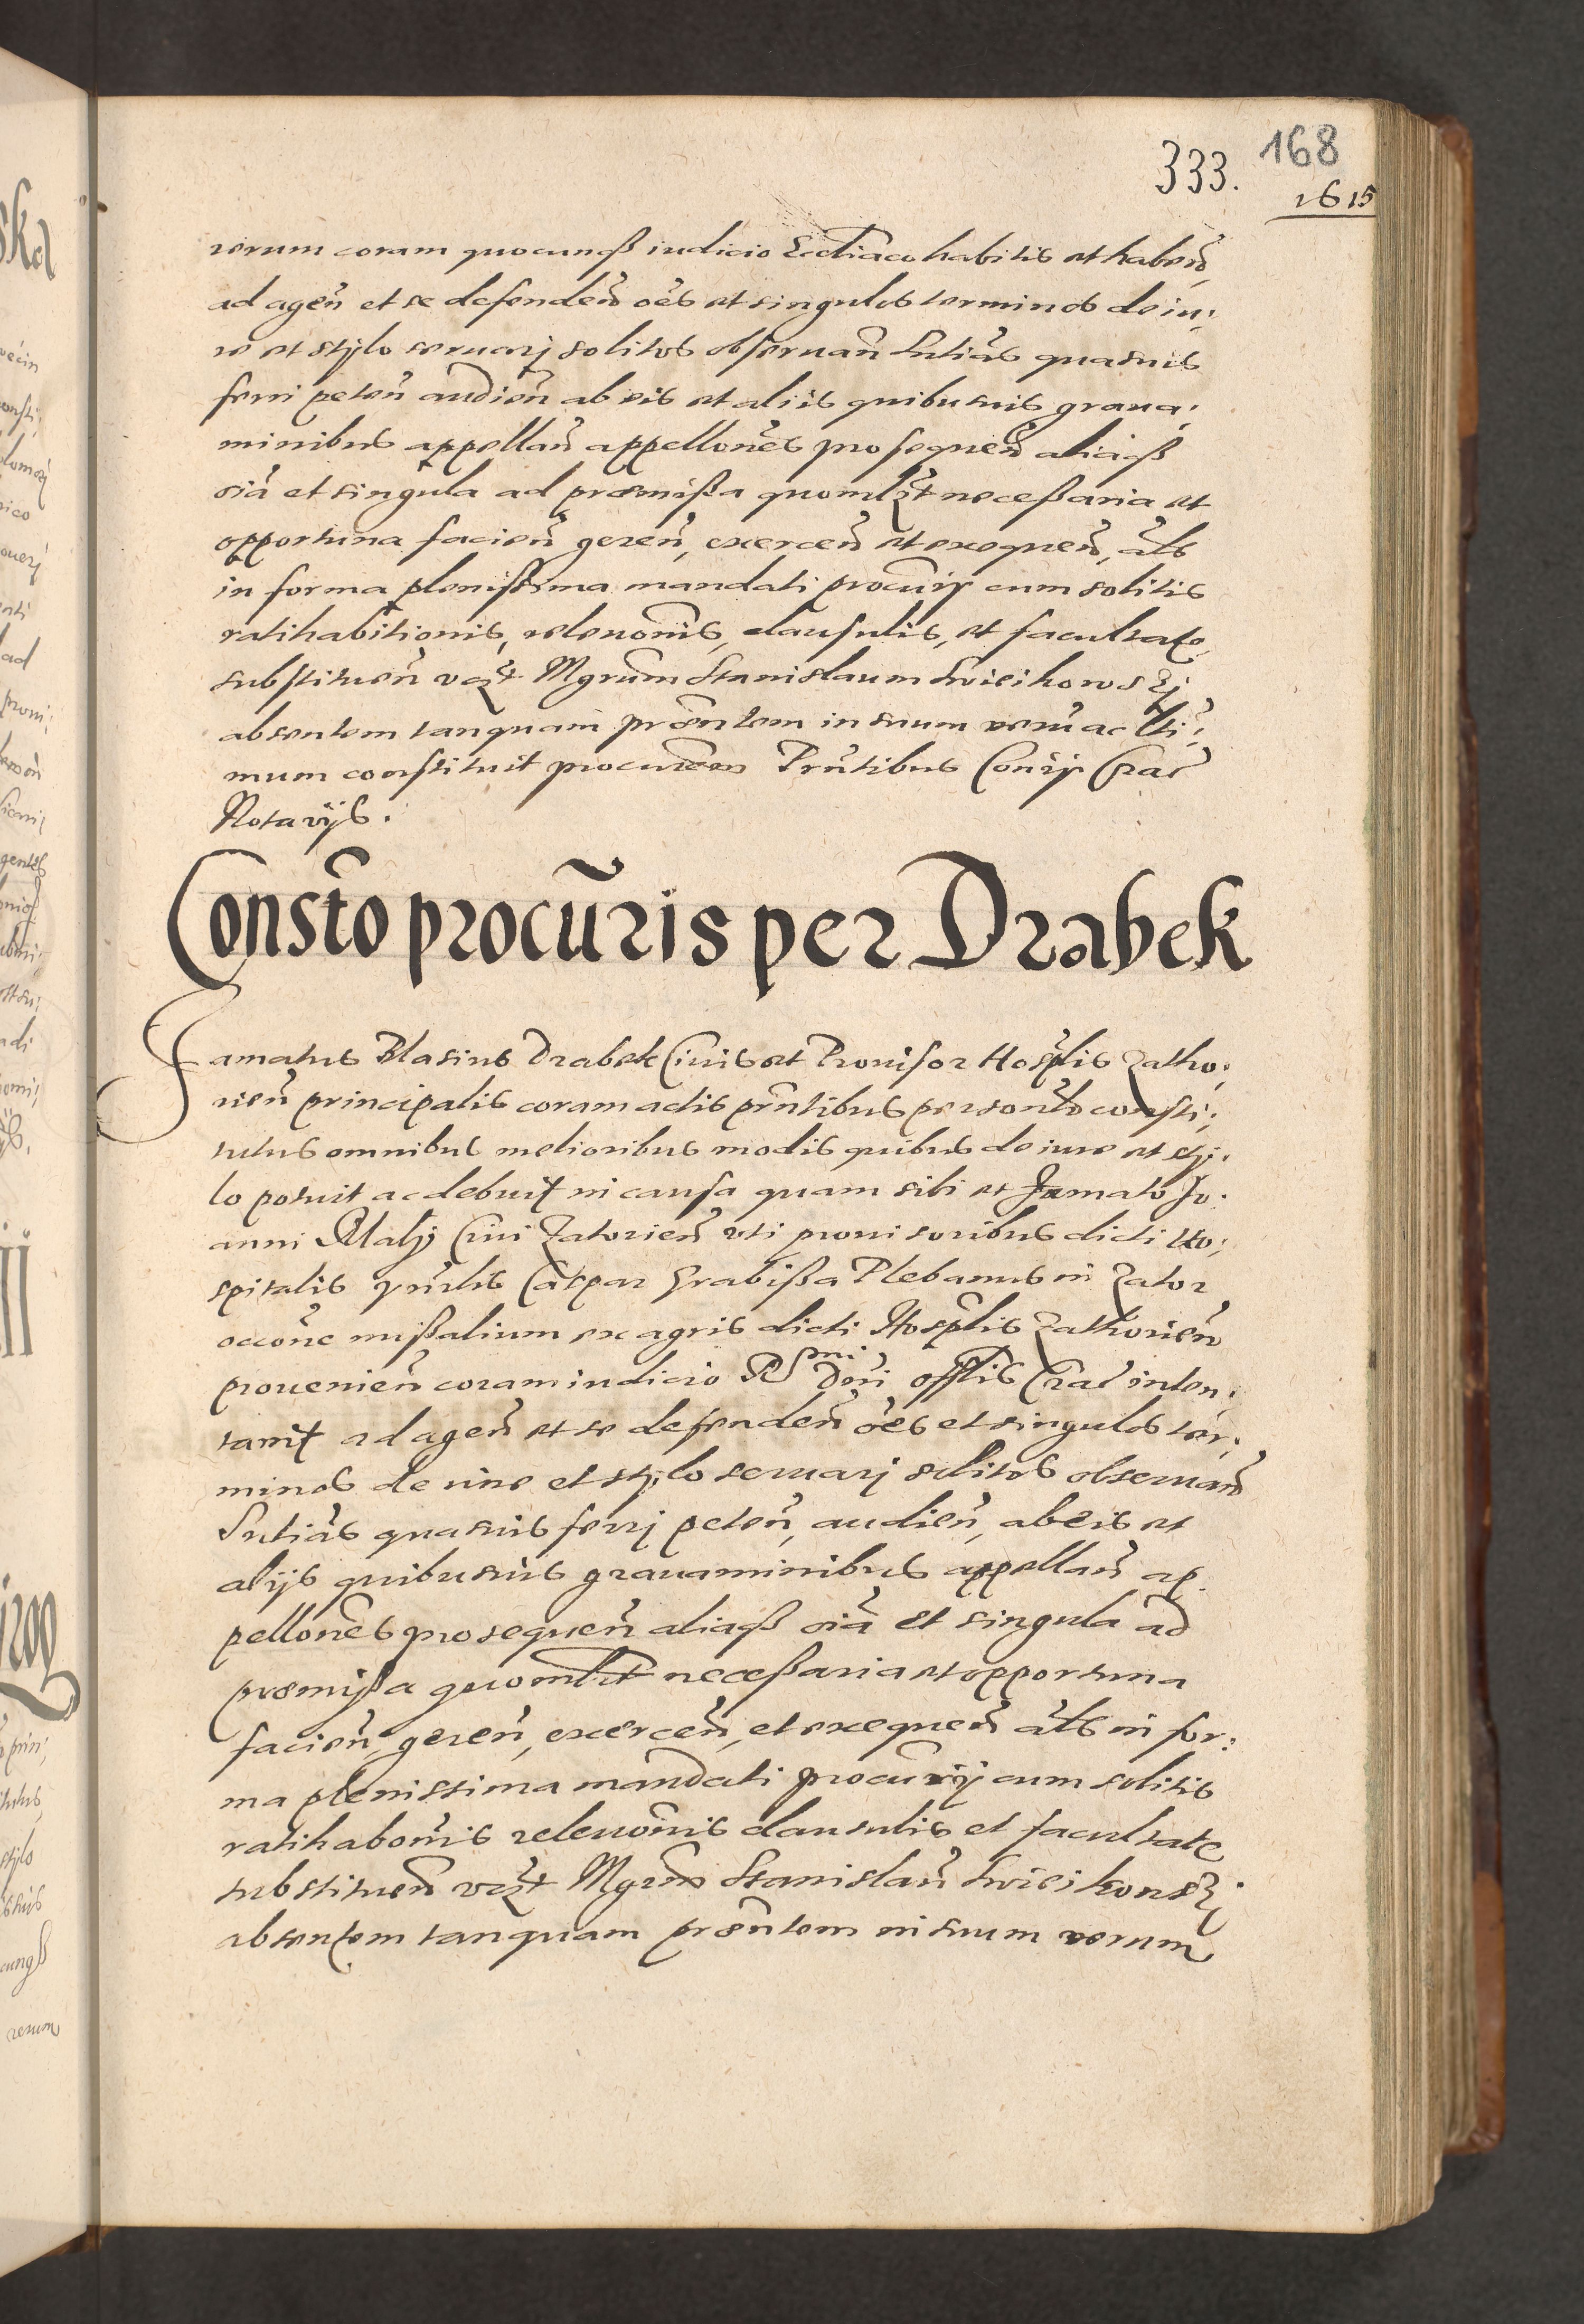 333. 168
1615
rerum coram quocunqß iudicio Eccliaco habitis et habeñ
ad ageñ et se defendeñ oẽs et singulos terminos de iu:
re et stylo seruarj solitos obseruañ sñtias quasuis
ferri peteñ audieñ ab eis et aliis quibusuis graua:
minibus appellañ appellones prosequeñ aliaqß
oĩa et singula ad præmißa quomlzt neceßaria et
opportuna facieñ gereñ, exerceñ et exequeñ, als
in forma plenißima mandati procurij cum solitis
ratihabitionis, releuonis, clausulis, et facultate
substitueñ vczt Mgrum Stanislaum
absentem tanquam præntem in suum verũ ac ltĩ:
mum constituit procurem Prñtibus Conrij Crac
Notarijs.
Consto procuris per Drabek
Famatus Blasius Drabek Ciuis et Prouisor Hosplis Zatho:
rieñ principalis coram actis prñtibus personlr consti:
tutus omnibus melioribus modis quibus de iure et sty:
lo potuit ac debuit in causa quam sibi et famato Jo:
anni Maly Ciui Zatorieñ vti prouisoribus dicti Ho:
spitalis Caspar Grabißa Plebanus in Zator
occone mißalium ex agris dicti Hosplis Zathorieñ
prouenieñ coram iudicio Rsmi Dñi offlis Crac inten:
tauit ad agendñ et se defendeñ oẽs et singulos ter:
minos de iure et stylo seruarj solitos obseruañ
Sñtias quasuis ferrj peteñ, audieñ, ab eis et
alijs quibusuis grauaminibus appellañ ap:
pellones prosequeñ aliaqß oĩa et singula ad
præmißa quomlbt neceßaria et opportuna
facieñ, gereñ, exerceñ, et exequeñ als in for:
ma plenissima mandati procurij cum solitis
ratihabonis releuonis clausulis et facultate
substitueñ vczt Mgrum Stanislaũ
absentem tanquam præntem in suum verum